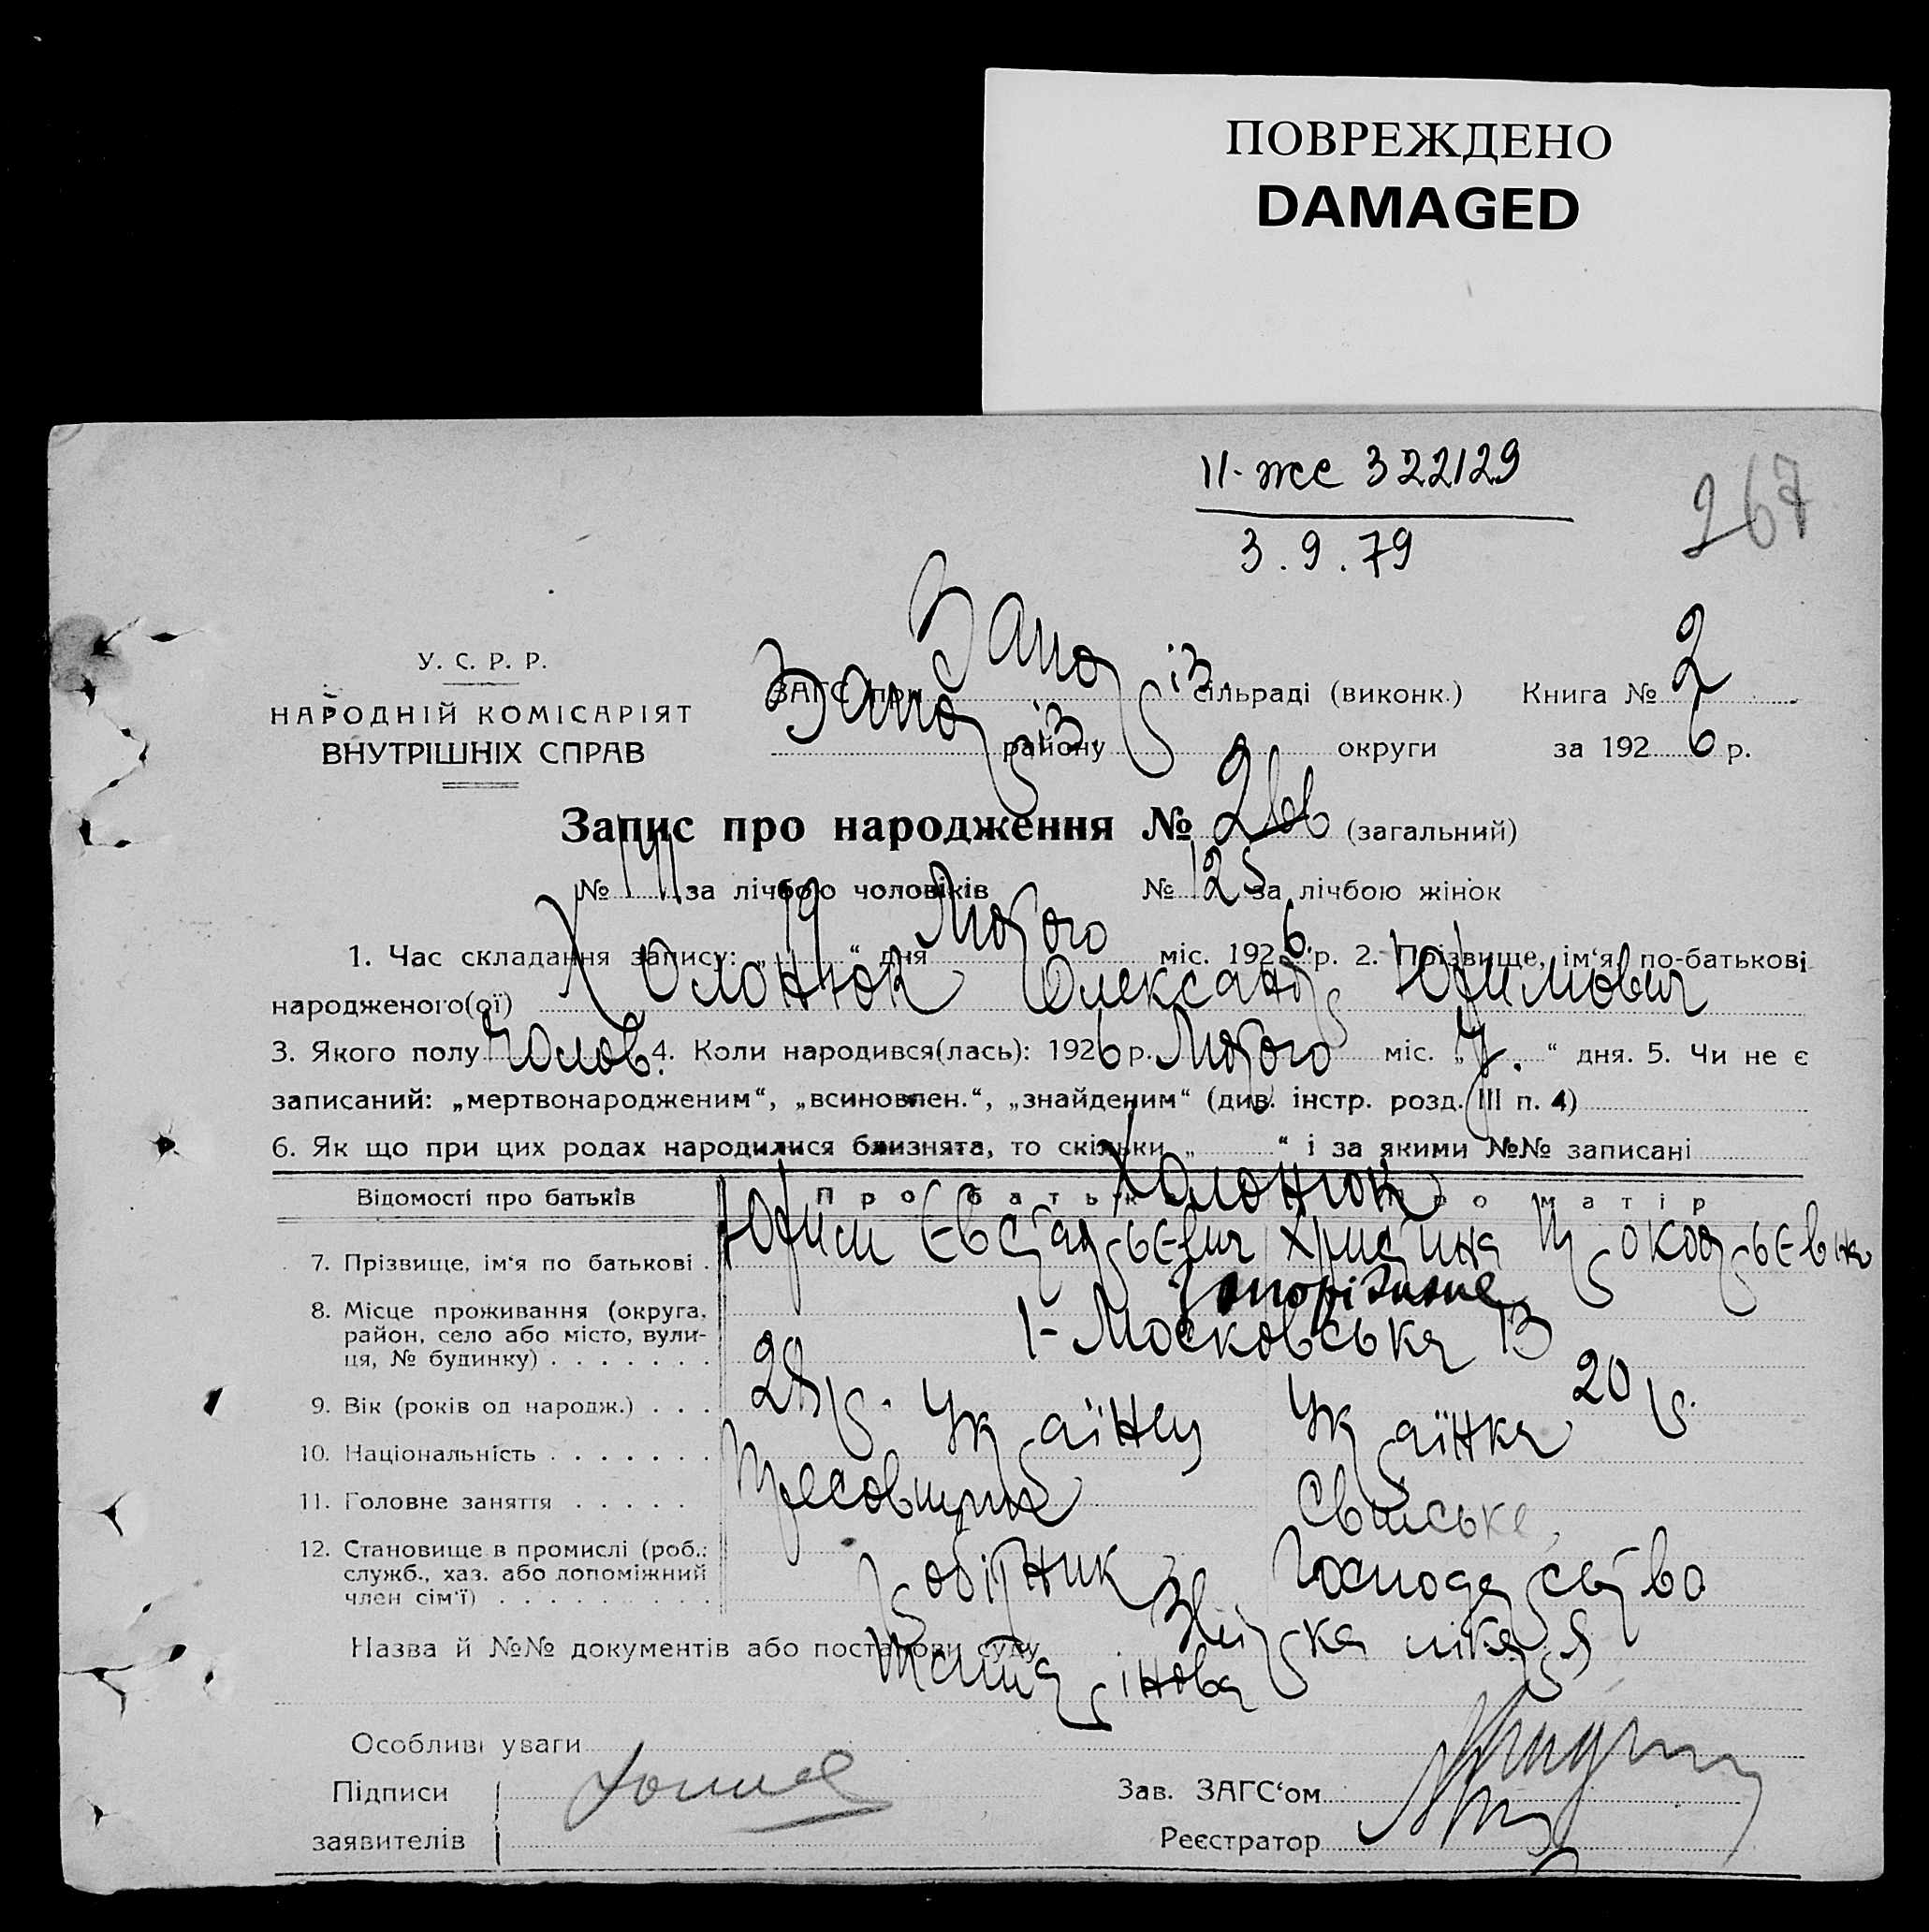 ПОВРЕЖДЕНО
DAMAGED
II-же 322129
3.9.79
267
У. С. Р. Р.
НАРОДНІЙ КОМІСАРІЯТ
ВНУТРІШНІХ СПРАВ
ЗАГС при Запоріз. сільраді (виконк.) Книга № 2
Запоріз. району округи за 1926 р.
Запис про народження № 266 (загальний)
№ 141 за лічбою чоловіків № 125 за лічбою жінок
1. Час складання запису: „19“ дня Лютого міс. 1926 р. 2. Прізвище, ім'я, по-батькові
народженого(ої) Холонюк Олександр Юфимович
3. Якого полу Чолов. 4. Коли народився(лась): 1926 р. Лютого міс. „7.“ дня. 5. Чи не є
записаний: „мертвонародженим“, „всиновлен.“, „знайденим“ (див. інстр. розд. III п. 4)
6. Як що при цих родах народилися близнята, то скільки „ “ і за якими №№ записані
Відомості про батьків Про батька Про матір
Холонюк
7. Прізвище, ім'я по батькові . Юфим Євстафьєвич Христина Прокофьєвна
Запоріжжя
8. Місце проживання (округа, район, село або місто, вулиця, № будинку) . . . . . . . 1-Московська 13
9. Вік (років од народж.) . . . 28 р. 20 р.
10. Національність . . . . . . . Українець Українка
11. Головне заняття . . . . . Пресовщик Свійське
12. Становище в промислі (роб.: служб., хаз. або допоміжний член сім'ї) . . . . . . . . . Робітник Господарство
Назва й №№ документів або постанови суду. Звірка лікаря
Особливі уваги
Підписи
заявителів
Зав. ЗАГС'ом
Реєстратор